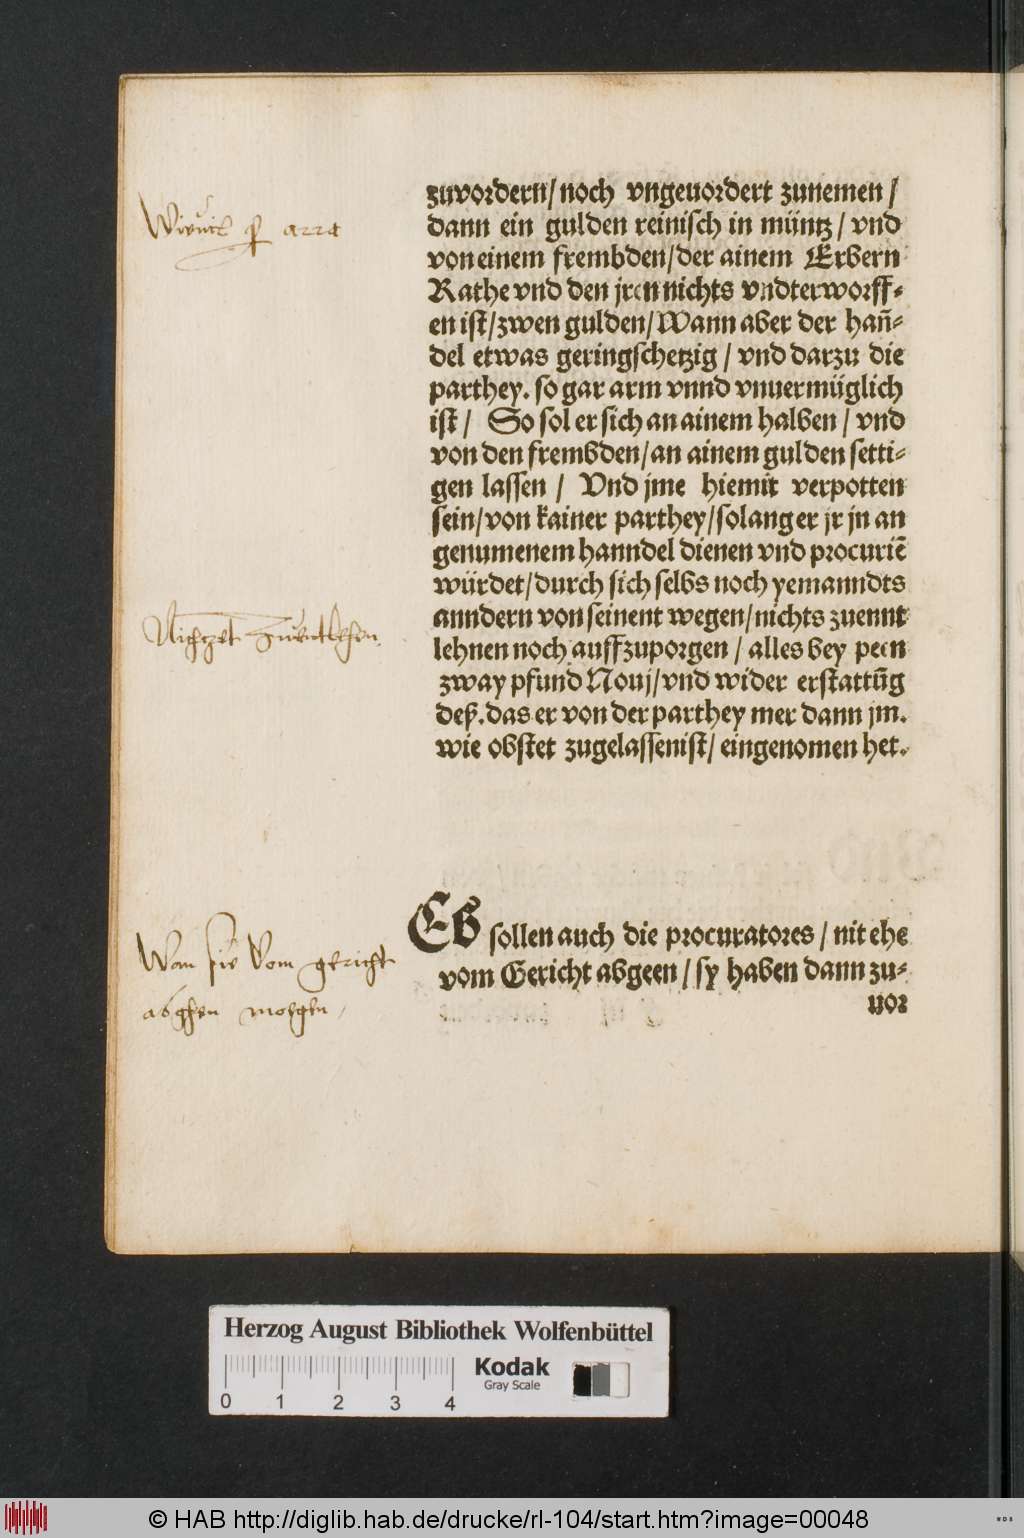 zuvordern/ noch vngeuordert zunemen /
dann ein gulden reinisch in müntz / vnd
von einem frembden/ der ainem Erbern
Rathe vnd den jren nichts vndterworff⸗
en ist/ zwen gulden/ Wann aber der han̄⸗
del etwas geringschetzig / vnd darzu die
parthey. so gar arm vnnd vnuermüglich
ist / So sol er sich an ainem halben / vnd
von den frembden/ an ainem gulden setti⸗
gen lassen / Vnd jme hiemit verpotten
sein/ von kainer parthey/ solang er jr jn an
genumenem hanndel dienen vnd procuriē
würdet/ durch sich selbs noch yemanndts
anndern von seinent wegen/ nichts zuennt
lehnen noch auffzuporgen / alles bey peen
zway pfund Nouj/ vnd wider erstattūg
deß. das er von der parthey mer dann jm.
wie obstet zugelassen ist/ eingenomen het.
Wieuil arra
Nichzet zuentlehen
Wan sie vom gericht
abghen moegen
Es sollen auch die procuratores / nit ehe
vom Gericht abgeen / sy haben dann zu⸗
uor
Herzog August Bibliothek Wolfenbüttel
Kodak
Gray Scale
0 1 2 3 4
© HAB http://diglib.hab.de/drucke/rl-104/start.htm?image=00048